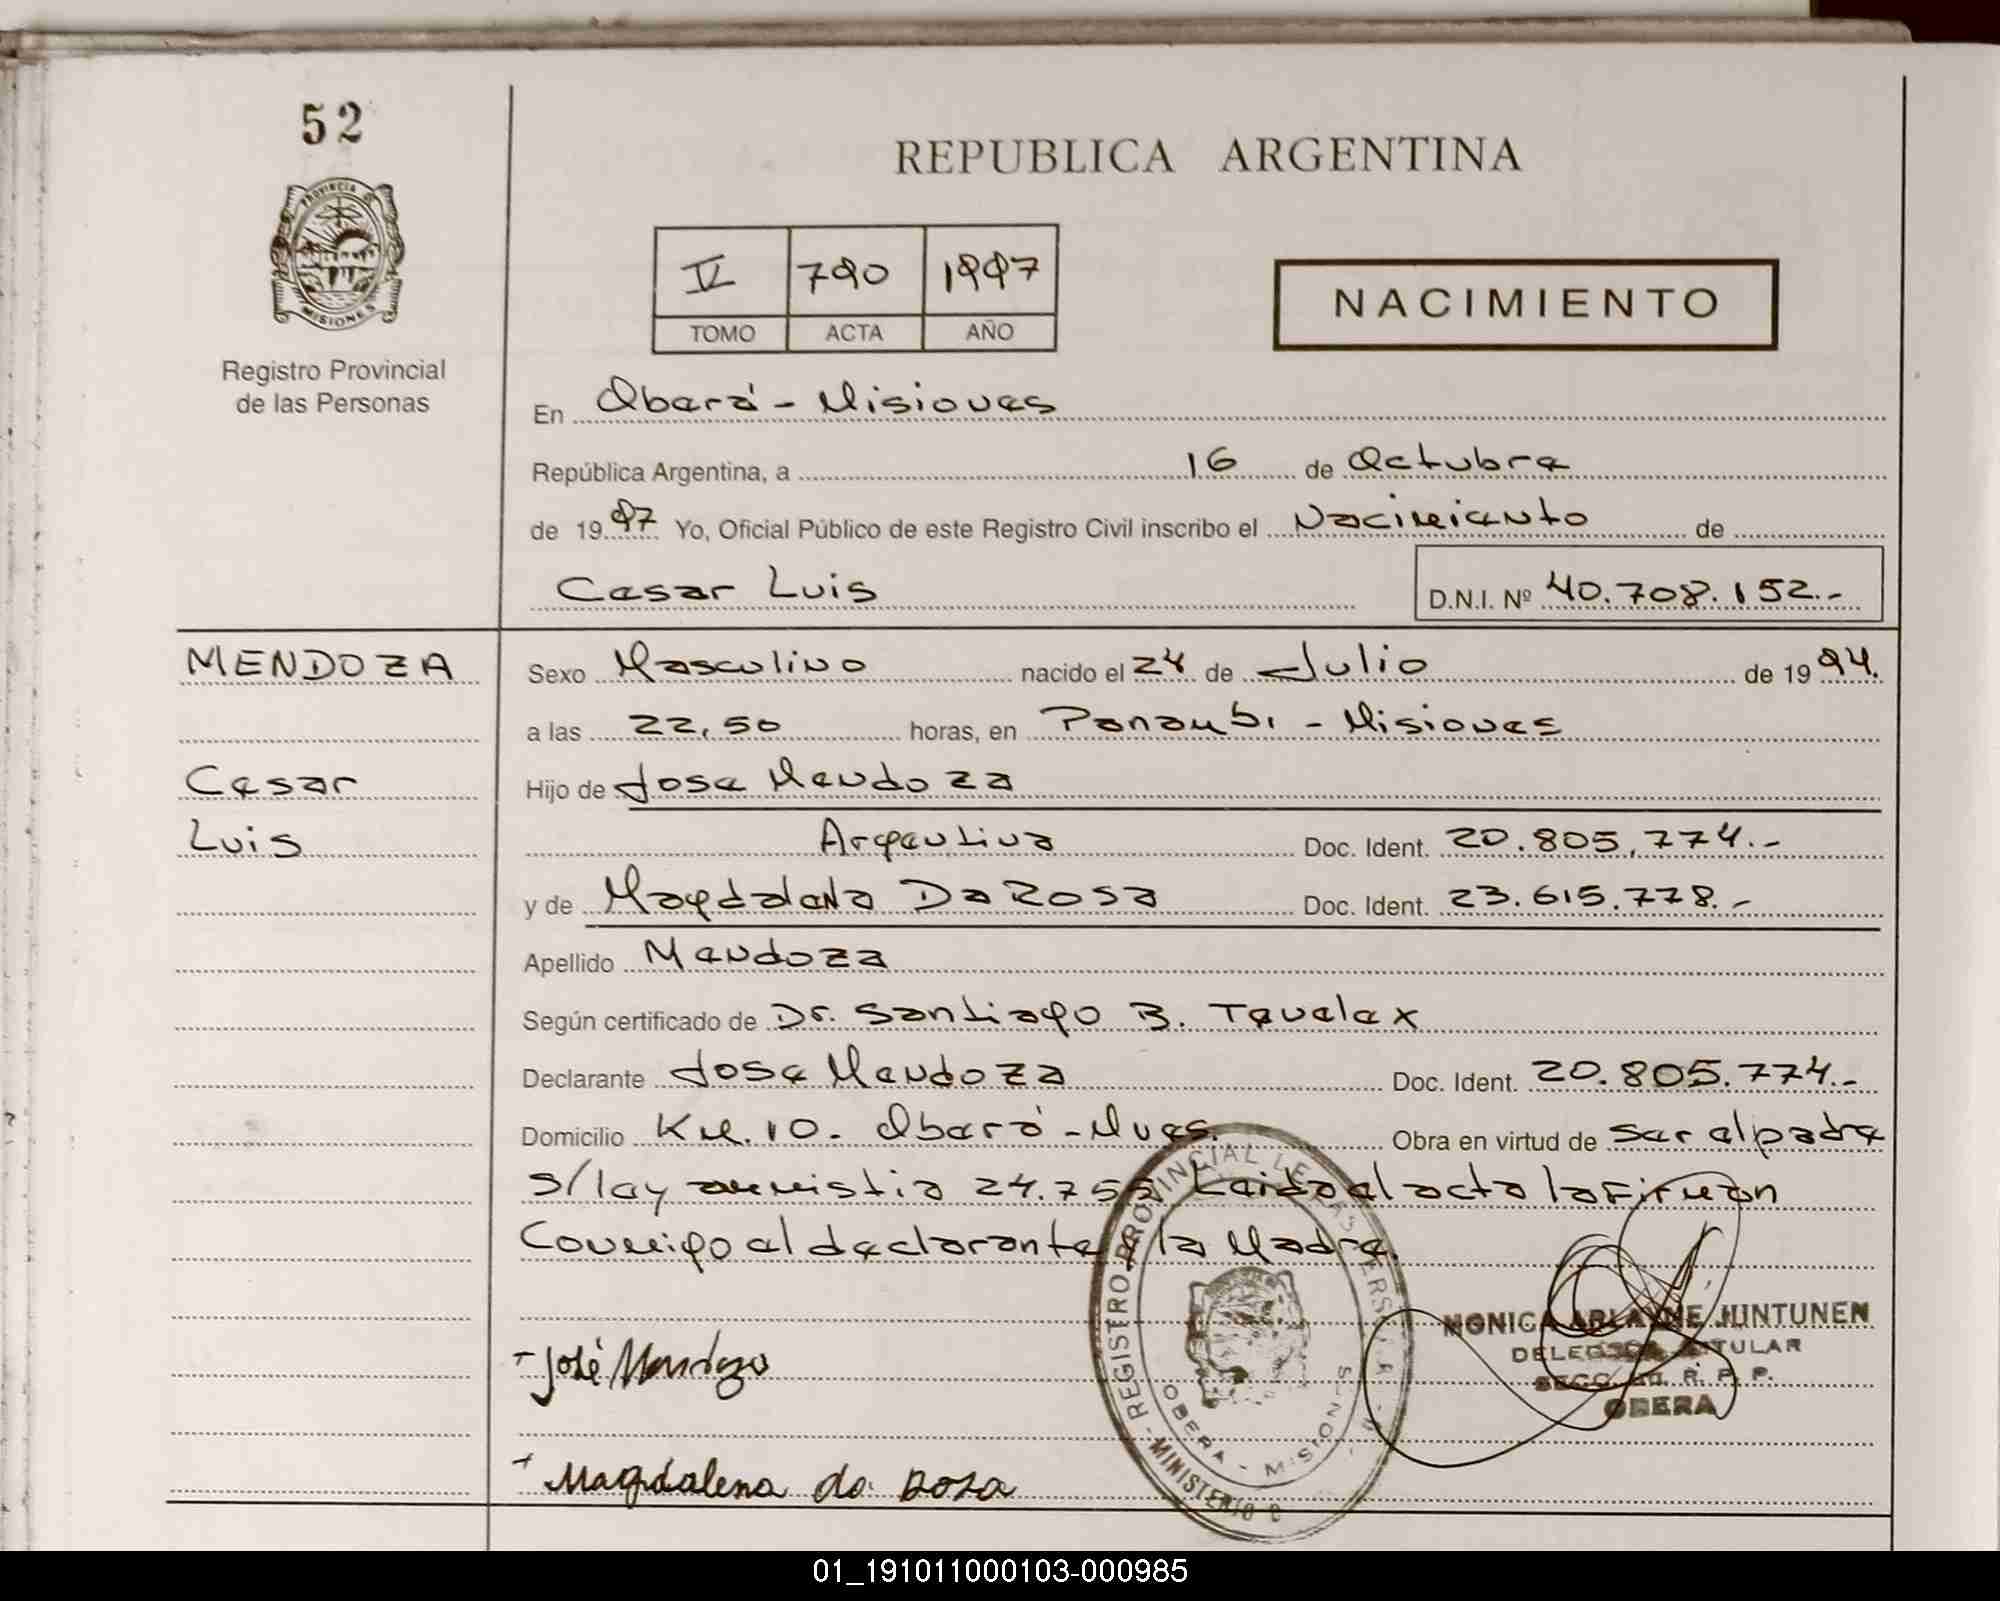 52
REPUBLICA ARGENTINA
PROVINCIA DE
MISIONES
Registro Provincial
de las Personas
V 790 1997
TOMO ACTA AÑO
NACIMIENTO
En Oberá - Misiones
República Argentina, a 16 de Octubre
de 1997 Yo, Oficial Público de este Registro Civil inscribo el Nacimiento de
Cesar Luis D.N.I. Nº 40.708.152.-
MENDOZA
Cesar
Luis
Sexo Masculino nacido el 24 de Julio de 1994.
a las 22,50 horas, en Panambi - Misiones
Hijo de Jose Mendoza
Argentina Doc. Ident. 20.805.774.-
y de Magdalena Da Rosa Doc. Ident. 23.615.778.-
Apellido Mendoza
Según certificado de Dr. Santiago B.
Declarante Jose Mendoza Doc. Ident. 20.805.774.-
Domicilio Km. 10. Oberá - Mnes. Obra en virtud de ser el padre
s/ley amnistia 24.755 Leida el acta la firman
Conmigo el declarante la Madre.
José Mendoza
Magdalena da Rosa
REGISTRO PROVINCIAL DE LAS PERSONAS
OBERA - MISIONES
MINISTERIO
MONICA ARLAYNE HUNTUNEN
DELEGADA TITULAR
SECC. R. P. P.
OBERA
01_191011000103-000985